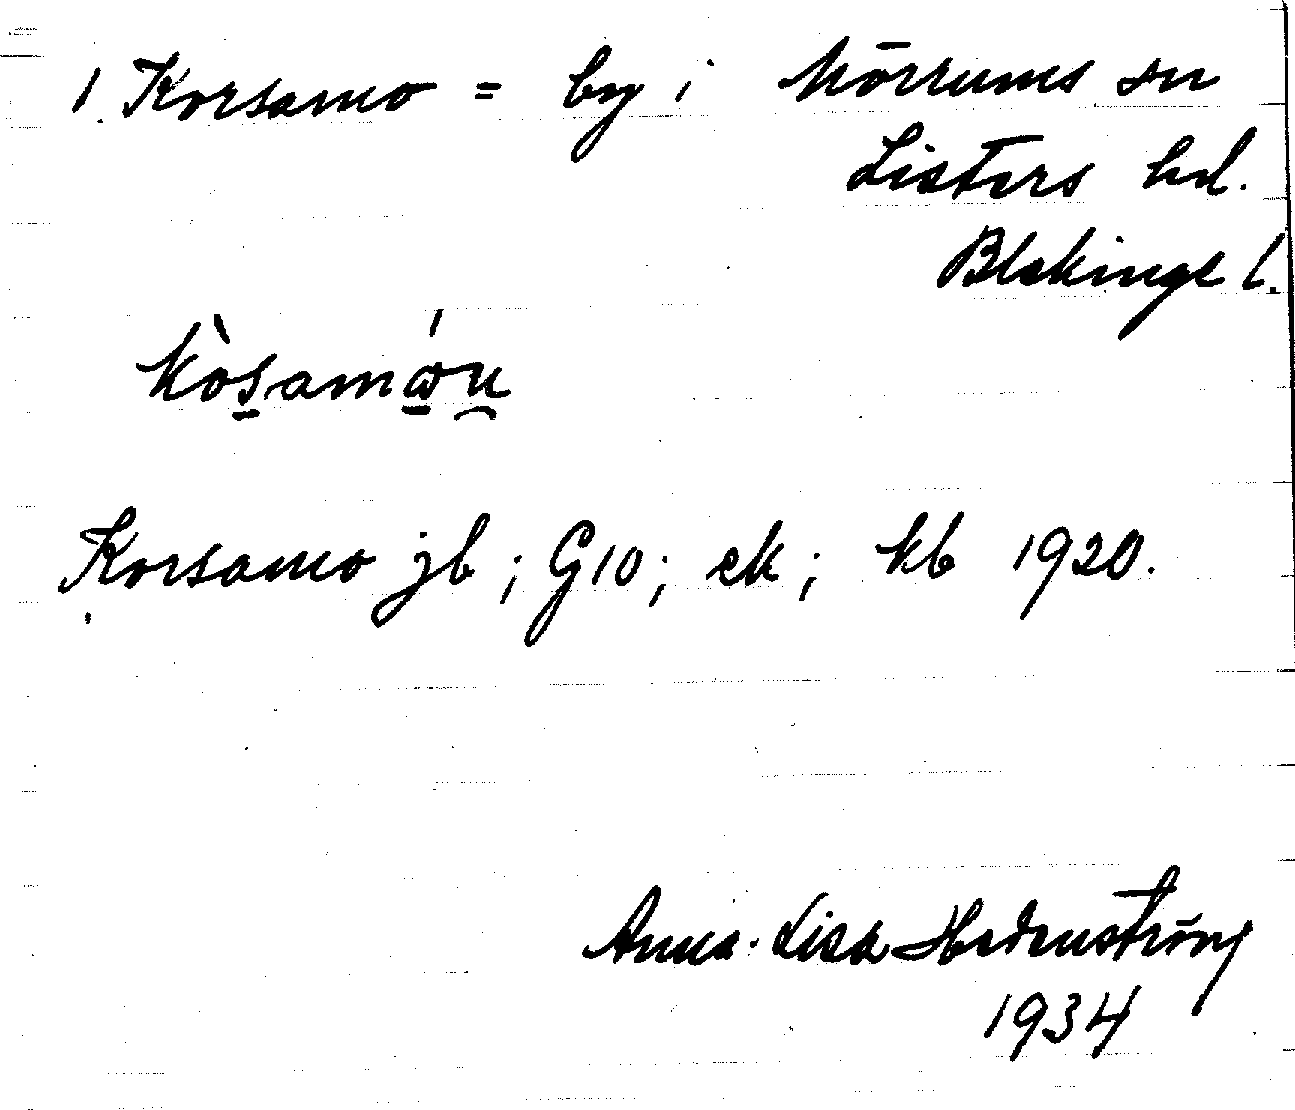 1. Korsamo = by i Mörrums sn
Listers hd.
Blekinge l.
kòs̱amó̱u̯
Korsamo jb; G10; ek; kb 1920.
Anna-Lisa Hedenström
1934